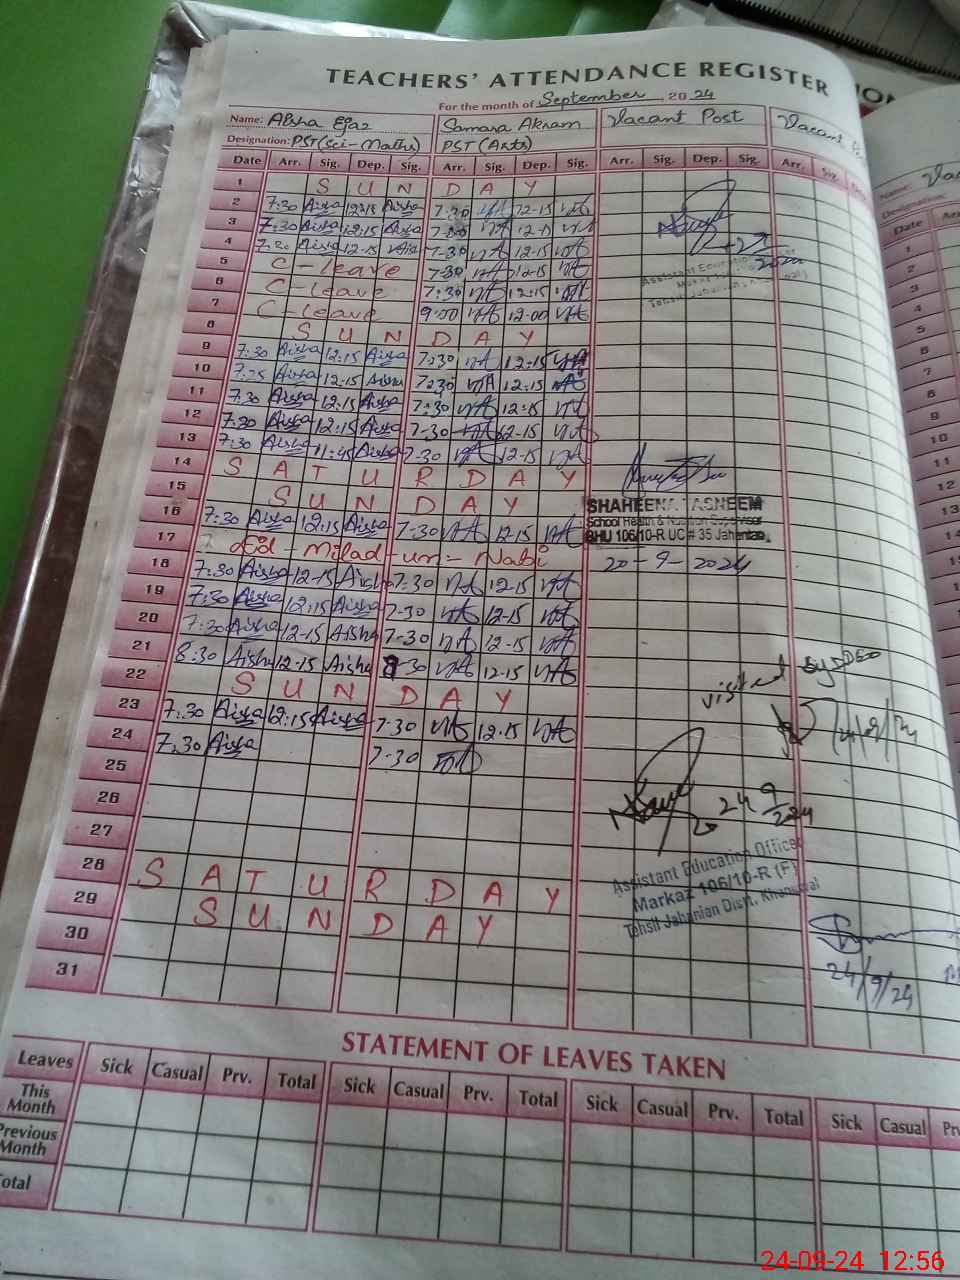 TEACHERS' ATTENDANCE REGISTER
For the month of September, 2024
Name: Aisha Ejaz Samara Akram Vacant Post Vacant
Designation: PST (Sci-Maths) PST (Arts)
Date Arr. Sig. Dep. Sig. Arr. Sig. Dep. Sig. Arr. Sig. Dep. Sig. Arr. Sig.
1 SUNDAY
2 7:30 Aisha 12:15 Aisha 7:30 12-15
3 7:30 Aisha 12:15 Aisha 7:30 12-15
4 7:30 Aisha 12-15 Aisha 7-30 12:15
5 C-leave 7-30 12-15
6 C-leave 7:30 12:15
7 C-leave 9:00 12:00
8 SUNDAY
9 7:30 Aisha 12:15 Aisha 7:30 12:15
10 7:25 Aisha 12-15 Aisha 7:30 12-15
11 7:30 Aisha 12:15 Aisha 7:30 12:15
12 7:30 Aisha 12:15 Aisha 7-30 12-15
13 7:30 Aisha 11:45 Aisha 7-30 12-15
14 SATURDAY
15 SUNDAY
16 7:30 Aisha 12:15 Aisha 7-30 12-15
17 Eid-Milad-un-Nabi
18 7:30 Aisha 12-15 Aisha 7-30 12-15
19 7:30 Aisha 12:15 Aisha 7-30 12-15
20 7:30 Aisha 12-15 Aisha 7-30 12-15
21 8:30 Aisha 12-15 Aisha 8-30 12-15
22 SUNDAY
23 7:30 Aisha 12:15 Aisha 7-30 12-15
24 7:30 Aisha 7-30
25
26
27
28 SATURDAY
29 SUNDAY
30
31
Assistant Education
SHAHEENA TASNEEM
School Health & Nutrition Supervisor
BHU 106/10-R UC # 35 Jahanian
20-9-2024
visited by DDEO
24 9
2024
Assistant Education Officer
Markaz 106/10-R (F)
Tehsil Jahanian Distt. Khanewal
24/9/24
STATEMENT OF LEAVES TAKEN
Leaves Sick Casual Prv. Total Sick Casual Prv. Total Sick Casual Prv. Total Sick Casual
This Month
Previous Month
Total
Name:
Designation:
Date
1
2
3
4
5
6
7
8
9
10
11
12
24-09-24 12:56